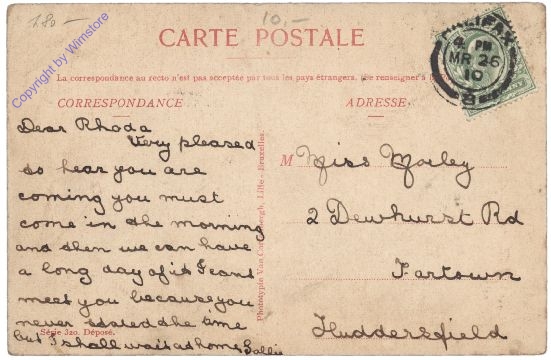 1.80 -
10,-
Copyright by Wimstore
CARTE POSTALE
La correspondance au recto n'est pas acceptée par tous les pays étrangers. (Se renseigner à
CORRESPONDANCE
Dear Rhoda
Very pleased
to hear you are
coming you must
come in the morning
and then we can have
a long day of it I cant
meet you because you
never stated the time
but I shall wait at home Sallie
Série 320. Déposé.
Phototypie Van Cortenbergh, Lille - Bruxelles.
ADRESSE
M Miss Morley
2 Dewhurst Rd
Fartown
Huddersfield
HALIFAX
4 PM
MR 26
10
8